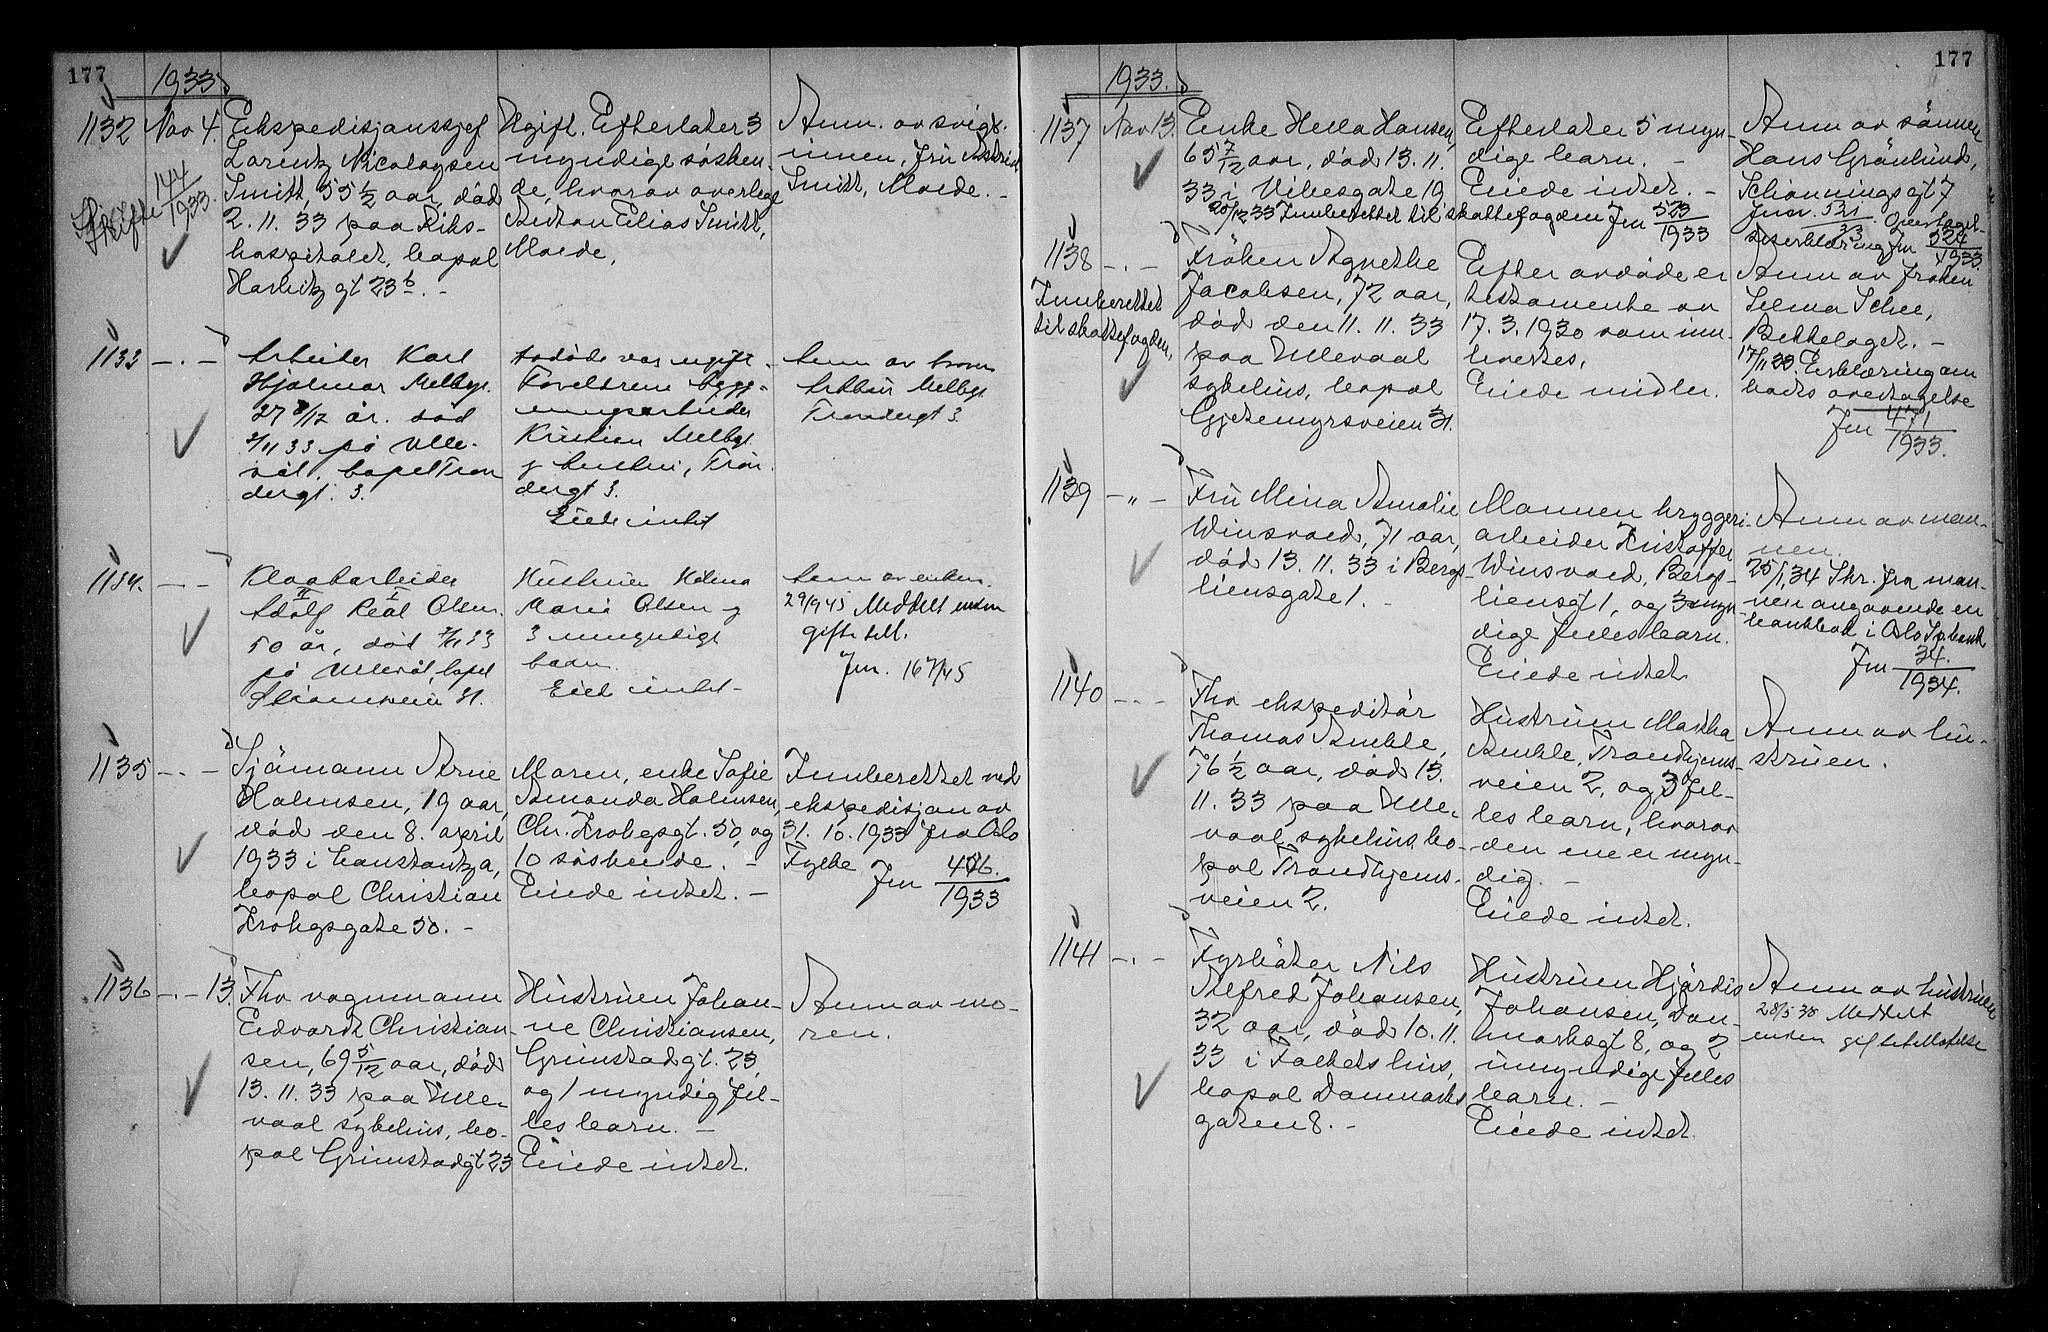 177
1933
1132 Nov 4. Ekspedisjonssjef
Lorentz Nicolaysen
Smitt, 55 1/2 aar, död
2. 11. 33 paa Riks-
hospitalet, bopæl
gt 23 b. -
Skifte 144/1933.
Ugift. Efterlater 3
myndige søsken-
de, hvorav overlege
Anton Elias Smitt,
Molde.
Anm. av svigr.
innen, fru Astrid
Smitt, Molde. -
1133 - . - Arbeider Karl
Hjalmar Melbye.
27 8/12 år. död
på Ulle-
vål. bopel Tron
dergt. 3.
Avdöde var ugift.
Foreldrene bygg-
ningsarbeider
Kristian Melbye
og hustru, Tron
dergt 3.
Eiet intet
Anm av brorn
Melbye
Trondergt 3.
1134. - - Kloakarbeider
Adolf Real Olsen.
50 år, död 7/11 33
på Ullevål, bopel
31.
Hustruen
Marie Olsen og
3 umyndige
barn.
Eiet intet -
Anm av enken.
29/9 45 Meddelt enken
gifte till.
Jnr. 167/45
1135 - . - Sjömann Arne
Holmsen, 19 aar,
död den 8. april
1933 i Constantza,
bopæl Christian
Krohgsgate 50. -
Moren, enke Sofie
Amanda Holmsen,
Chr. Krohgsgt. 50, og
10 söskende. -
Eiede intet. -
Innberettet ved
ekspedisjon av
31. 10. 1933 fra Oslo
Fylke
Jnr 1933
1136 - . - 13. Fhv vognmann
Edvardt Christian-
sen, 69 5/12 aar, död
13. 11. 33 paa Ulle-
vaal sykehus, bo-
pæl Grimstadgt 23
Hustruen Johan-
ne Christiansen,
Grimstadgt. 23,
og 1 myndig fel-
les barn. -
Eiede intet.
Anm av mo-
ren.
177
1933.
1137 Nov 13. Enke Hella Hansen,
65 7/12 aar, död 13. 11.
33 i Vibesgate 19
20/12 33 Innberettet til skattefogden Jnr 523/1933
Efterlater 5 myn-
dige barn. -
Eiede intet. -
Anm av sönnen
Hans Grönlund,
Schönningsgt 7
Jnr. 521/33 Overtagel-
seserklæring Jnr 524/1933.
1138 - . - Fröken Agnethe
Jacobsen, 72 aar,
död den 11. 11. 33
paa Ullevaal
sykehus, bopæl
Gjetemyrsveien 31.
Innberettet
til skattefogden,
Efter avdöde er
testamente av
17. 3. 1930 som inn-
levertes,
Eiede midler.
Anm av fröken
Selma Schee,
Bekkelaget. -
17/11 33. Erklæring om
boets overtagelse
Jnr 471/1933.
1139 - " - Fru Mina Amalie
Winsvold, 71 aar,
död 13. 11. 33 i Bergs-
liensgate 1. -
Mannen bryggeri-
arbeider Kristoffer
Winsvold, Bergs-
liensgt 1, og 3 myn-
dige felles barn.
Eiede intet
Anm av man-
nen.
25/1, 34 Skr. fra man-
nen angaaende en
bankbok i Oslo Spbank
Jnr 34./1934.
1140 - . - Fhv ekspeditör
Thomas Amble,
76 1/2 aar, död 13.
11. 33 paa Ulle-
vaal sykehus, bo-
pæl Trondhjems-
veien 2.
Hustruen Martha
Amble, Trondhjems-
veien 2, og 3 fel-
les barn, hvorav
den ene er myn-
dig. -
Eiede intet.
Anm av hu-
struen.
1141 - . - Fyrböter Nils
Alfred Johansen,
32 aar, död 10. 11.
33 i Folkets hus,
bopæl Danmarks
gaten 8. -
Hustruen Hjördis
Johansen, Dan-
marksgt 8, og 2
umyndige felles
barn. -
Eiede intet.
Anm av hustruen
28/5 35 Meddelt
enken giftetillatelse